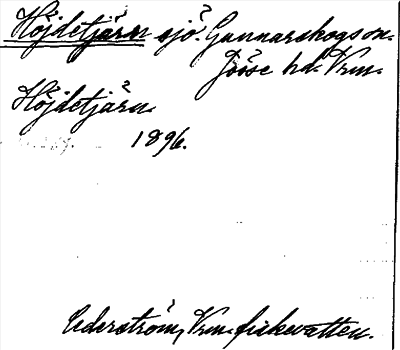 Höjdetjärn sjö. Gunnarskogs sn.
Jösse hd. Vrm.
Höjdetjärn.
1896.
Cederström, Vrm. fiskevatten.